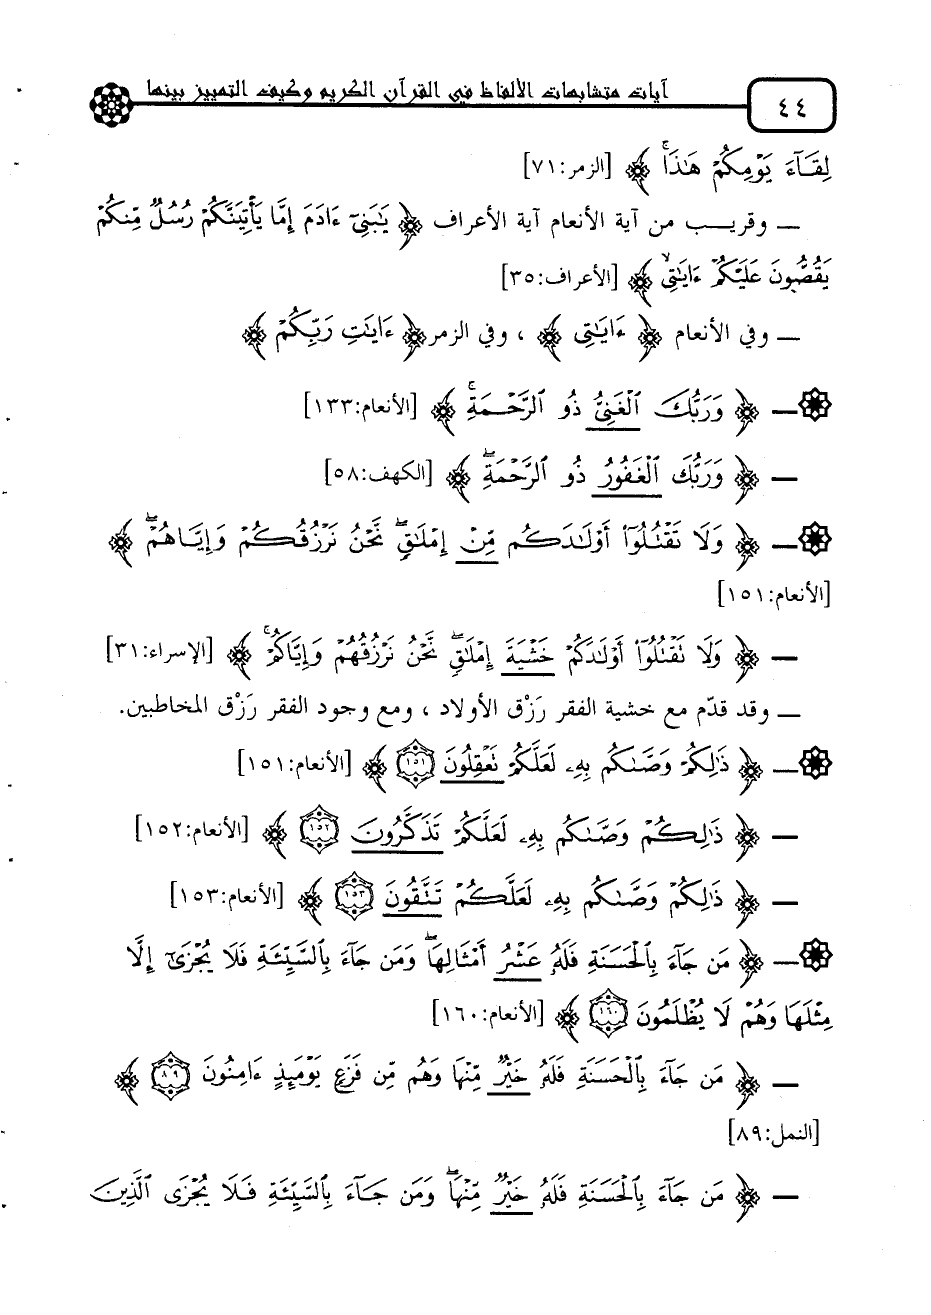 آيات متشابهات الألفاظ في القرآن الكريم وكيف التمييز بينها
٤٤
لِقَآءَ يَوْمِكُمْ هَٰذَاۚ ﴾ [الزمر:٧١]
ـ وقريـــب من آية الأنعام آية الأعراف ﴿ يَٰبَنِىٓ ءَادَمَ إِمَّا يَأْتِيَنَّكُمْ رُسُلٌ مِّنكُمْ
يَقُصُّونَ عَلَيْكُمْ ءَايَٰتِىۙ ﴾ [الأعراف:٣٥]
ـ وفي الأنعام ﴿ ءَايَٰتِى ﴾ ، وفي الزمر ﴿ ءَايَٰتِ رَبِّكُمْ ﴾
ـ ﴿ وَرَبُّكَ ٱلْغَنِىُّ ذُو ٱلرَّحْمَةِۚ ﴾ [الأنعام:١٣٣]
ـ ﴿ وَرَبُّكَ ٱلْغَفُورُ ذُو ٱلرَّحْمَةِۖ ﴾ [الكهف:٥٨]
ـ ﴿ وَلَا تَقْتُلُوٓا۟ أَوْلَٰدَكُم مِّنْ إِمْلَٰقٍۖ نَّحْنُ نَرْزُقُكُمْ وَإِيَّاهُمْۖ ﴾
[الأنعام:١٥١]
ـ ﴿ وَلَا تَقْتُلُوٓا۟ أَوْلَٰدَكُمْ خَشْيَةَ إِمْلَٰقٍۖ نَّحْنُ نَرْزُقُهُمْ وَإِيَّاكُمْۚ ﴾ [الإسراء:٣١]
ـ وقد قدّم مع خشية الفقر رَزْق الأولاد ، ومع وجود الفقر رَزْق المخاطبين.
ـ ﴿ ذَٰلِكُمْ وَصَّىٰكُم بِهِۦ لَعَلَّكُمْ تَعْقِلُونَ ١٥١ ﴾ [الأنعام:١٥١]
ـ ﴿ ذَٰلِكُمْ وَصَّىٰكُم بِهِۦ لَعَلَّكُمْ تَذَكَّرُونَ ١٥٢ ﴾ [الأنعام:١٥٢]
ـ ﴿ ذَٰلِكُمْ وَصَّىٰكُم بِهِۦ لَعَلَّكُمْ تَتَّقُونَ ١٥٣ ﴾ [الأنعام:١٥٣]
ـ ﴿ مَن جَآءَ بِٱلْحَسَنَةِ فَلَهُۥ عَشْرُ أَمْثَالِهَاۖ وَمَن جَآءَ بِٱلسَّيِّئَةِ فَلَا يُجْزَىٰٓ إِلَّا
مِثْلَهَا وَهُمْ لَا يُظْلَمُونَ ١٦٠ ﴾ [الأنعام:١٦٠]
ـ ﴿ مَن جَآءَ بِٱلْحَسَنَةِ فَلَهُۥ خَيْرٌ مِّنْهَا وَهُم مِّن فَزَعٍ يَوْمَئِذٍ ءَامِنُونَ ٨٩ ﴾
[النمل:٨٩]
ـ ﴿ مَن جَآءَ بِٱلْحَسَنَةِ فَلَهُۥ خَيْرٌ مِّنْهَاۖ وَمَن جَآءَ بِٱلسَّيِّئَةِ فَلَا يُجْزَى ٱلَّذِينَ